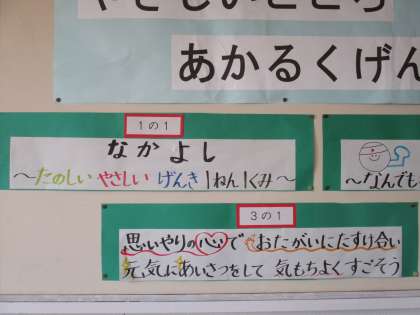 やさしいこころ
あかるくげん
1の1
なかよし
～たのしい やさしい げんき 1ねん1くみ～
～なんでも
3の1
思いやりの心で おたがいにたすけ合い
元気にあいさつをして 気もちよくすごそう